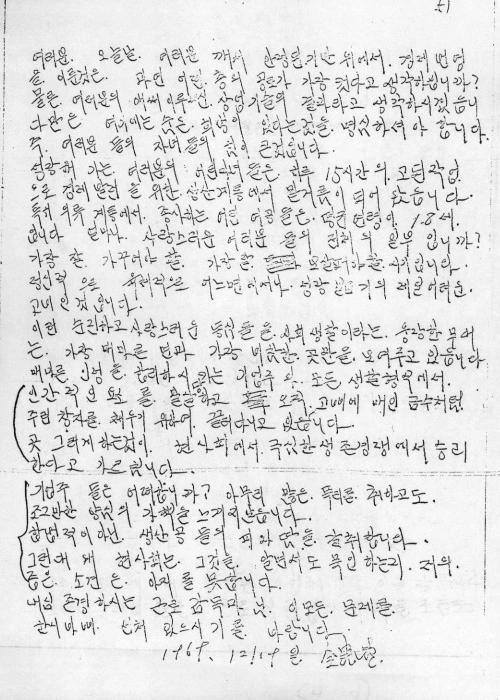 여러분. 오늘날. 여러분 께서 안정된 기반 위에서. 경제 번영
을. 이룬것은. 과연 어떤. 층의 공로가 가장 컷다고 생각하십니까?
물론. 여러분의 애써 이루신. 상업기술의 결과라고 생각하시겠읍니
다만은 여기에는 숨은. 희생이 있다는것을. 명심하셔야 합니다.
즉. 여러분 들의 자녀들의 힘이 큰것입니다.
성장해 가는. 여러분의 어린자녀들은. 하루 15시간의. 고된작업
으로 경제 발전 을 위한. 생산계통에서 밑거름이 되어 왔읍니다.
특히 의류 계통에서. 종사하는 어린 여공들은. 평균 연령이. 18세.
입니다 얼마나. 사랑스러운 여러분 들의 전체의 일부 입니까?
가장 잘. 가꾸어야 할. 가장 잘. 보살펴야 할. 시기입니다.
정신적 으로 육체적으로 어느면에서나. 성장 기의 제일 어려운.
고비인것 입니다.
이런 순진하고 사랑스러운 동심들을 사회 생활이라는. 웅장한 무대
는. 가장 메마른 면과 가장 비참한. 곳만을. 보여주고 있읍니다.
메마른 인정을. 합리화시키는 기업주와. 모든 생활형식에서.
인간적인 요소를 말살당하고 오직. 고삐에 매인 금수처럼.
주린 창자를. 채우기 위하여. 끌려다니고 있읍니다.
곳 그러게 하는것이. 현사회에서. 극심한 생존경쟁에서 승리
한다고 가르칩니다.
기업주 들은 어떠합니까? 아무리 많은. 폭리를. 취하고도.
조그만한 양심의 가책을 느끼지 않읍니다.
합법적이 아닌. 생산공 들의 피와 땀을. 갈취합니다.
그런데 왜 현사회는. 그것을. 알면서도 묵인하는지. 저의.
좁은. 소견 은. 알지를 못합니다.
내심 존경하시는 근로감독관님. 이모든. 문제를.
한시바삐. 선처 있으시기를. 바랍니다.
1969. 12月19일